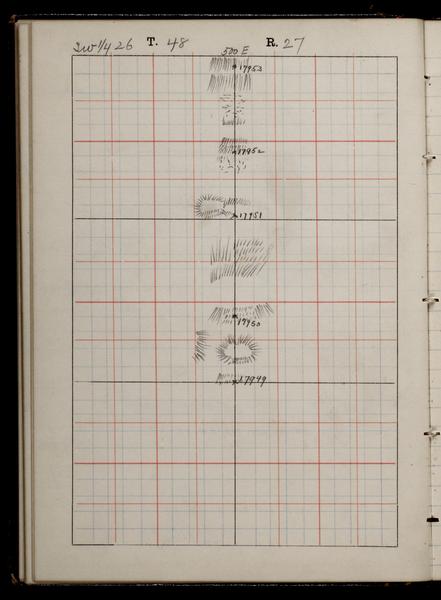 SW 1/4 26 T. 48 R. 27
500 E
17953
17952
17951
17950
17949